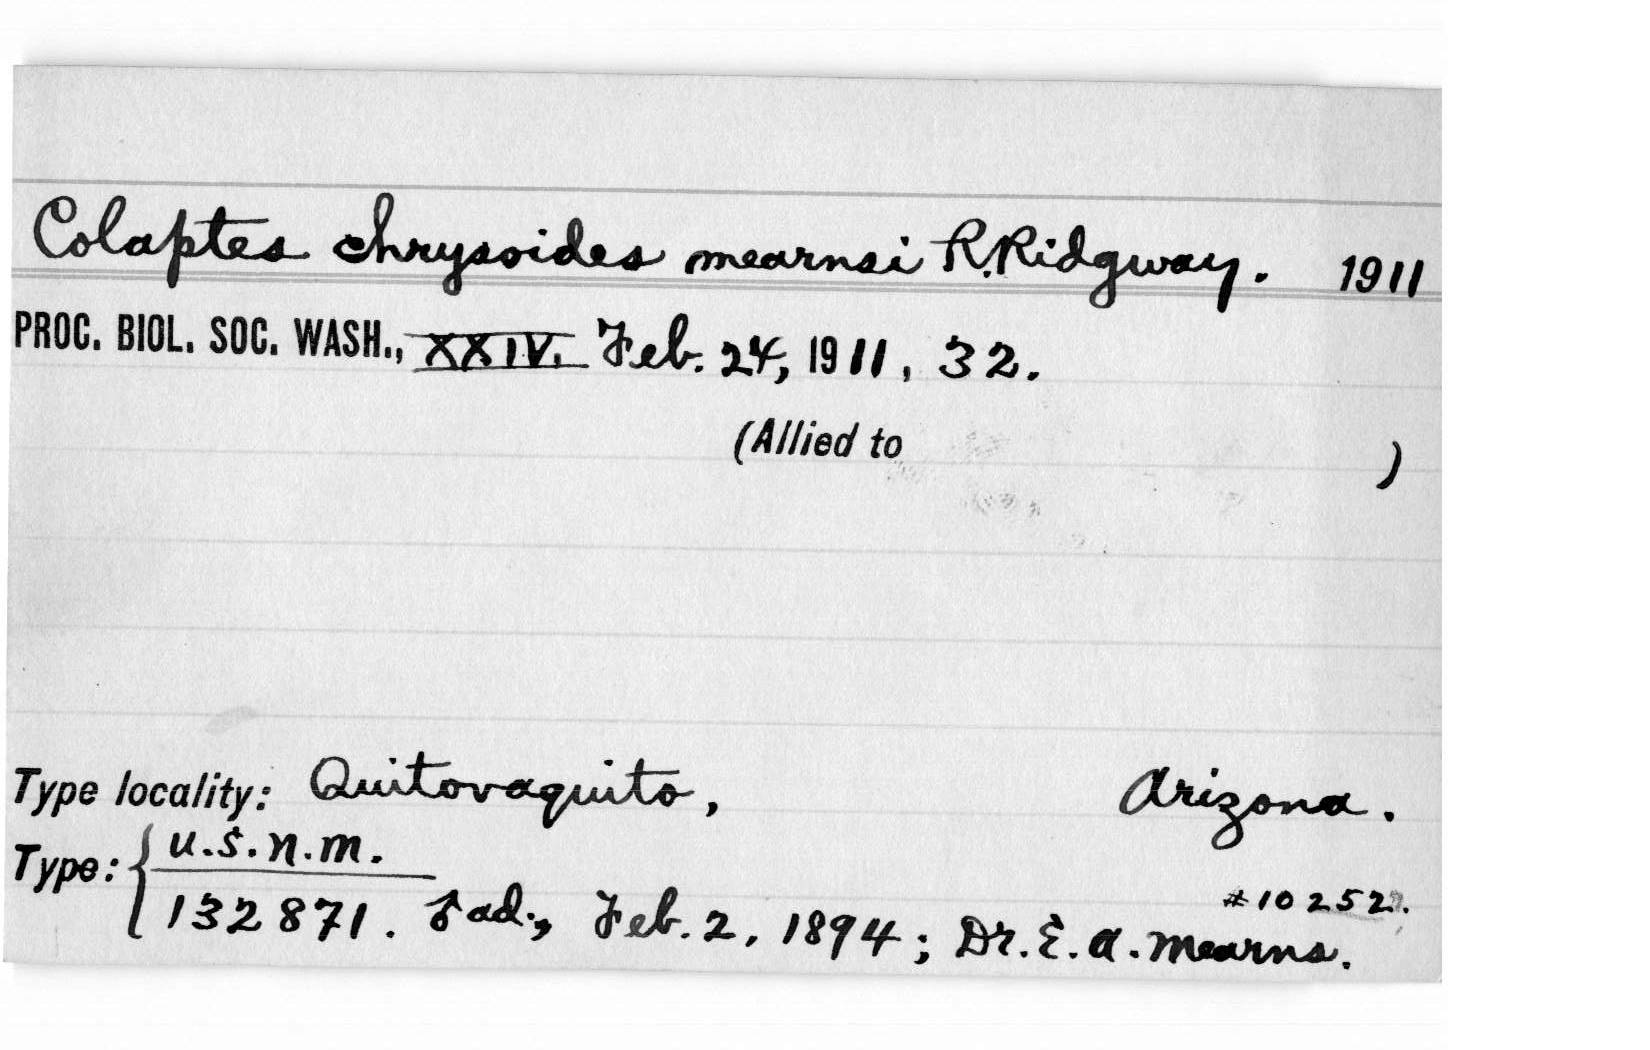 Colaptes chrysoides mearnsi R. Ridgway. 1911
PROC. BIOL. SOC. WASH., XXIV. Feb. 24, 1911, 32.
(Allied to )
Type locality: Quitovaquito, Arizona.
Type: { U.S.N.M.
#10252.
132871. ♂ ad., Feb. 2, 1894; Dr. E. A. Mearns.